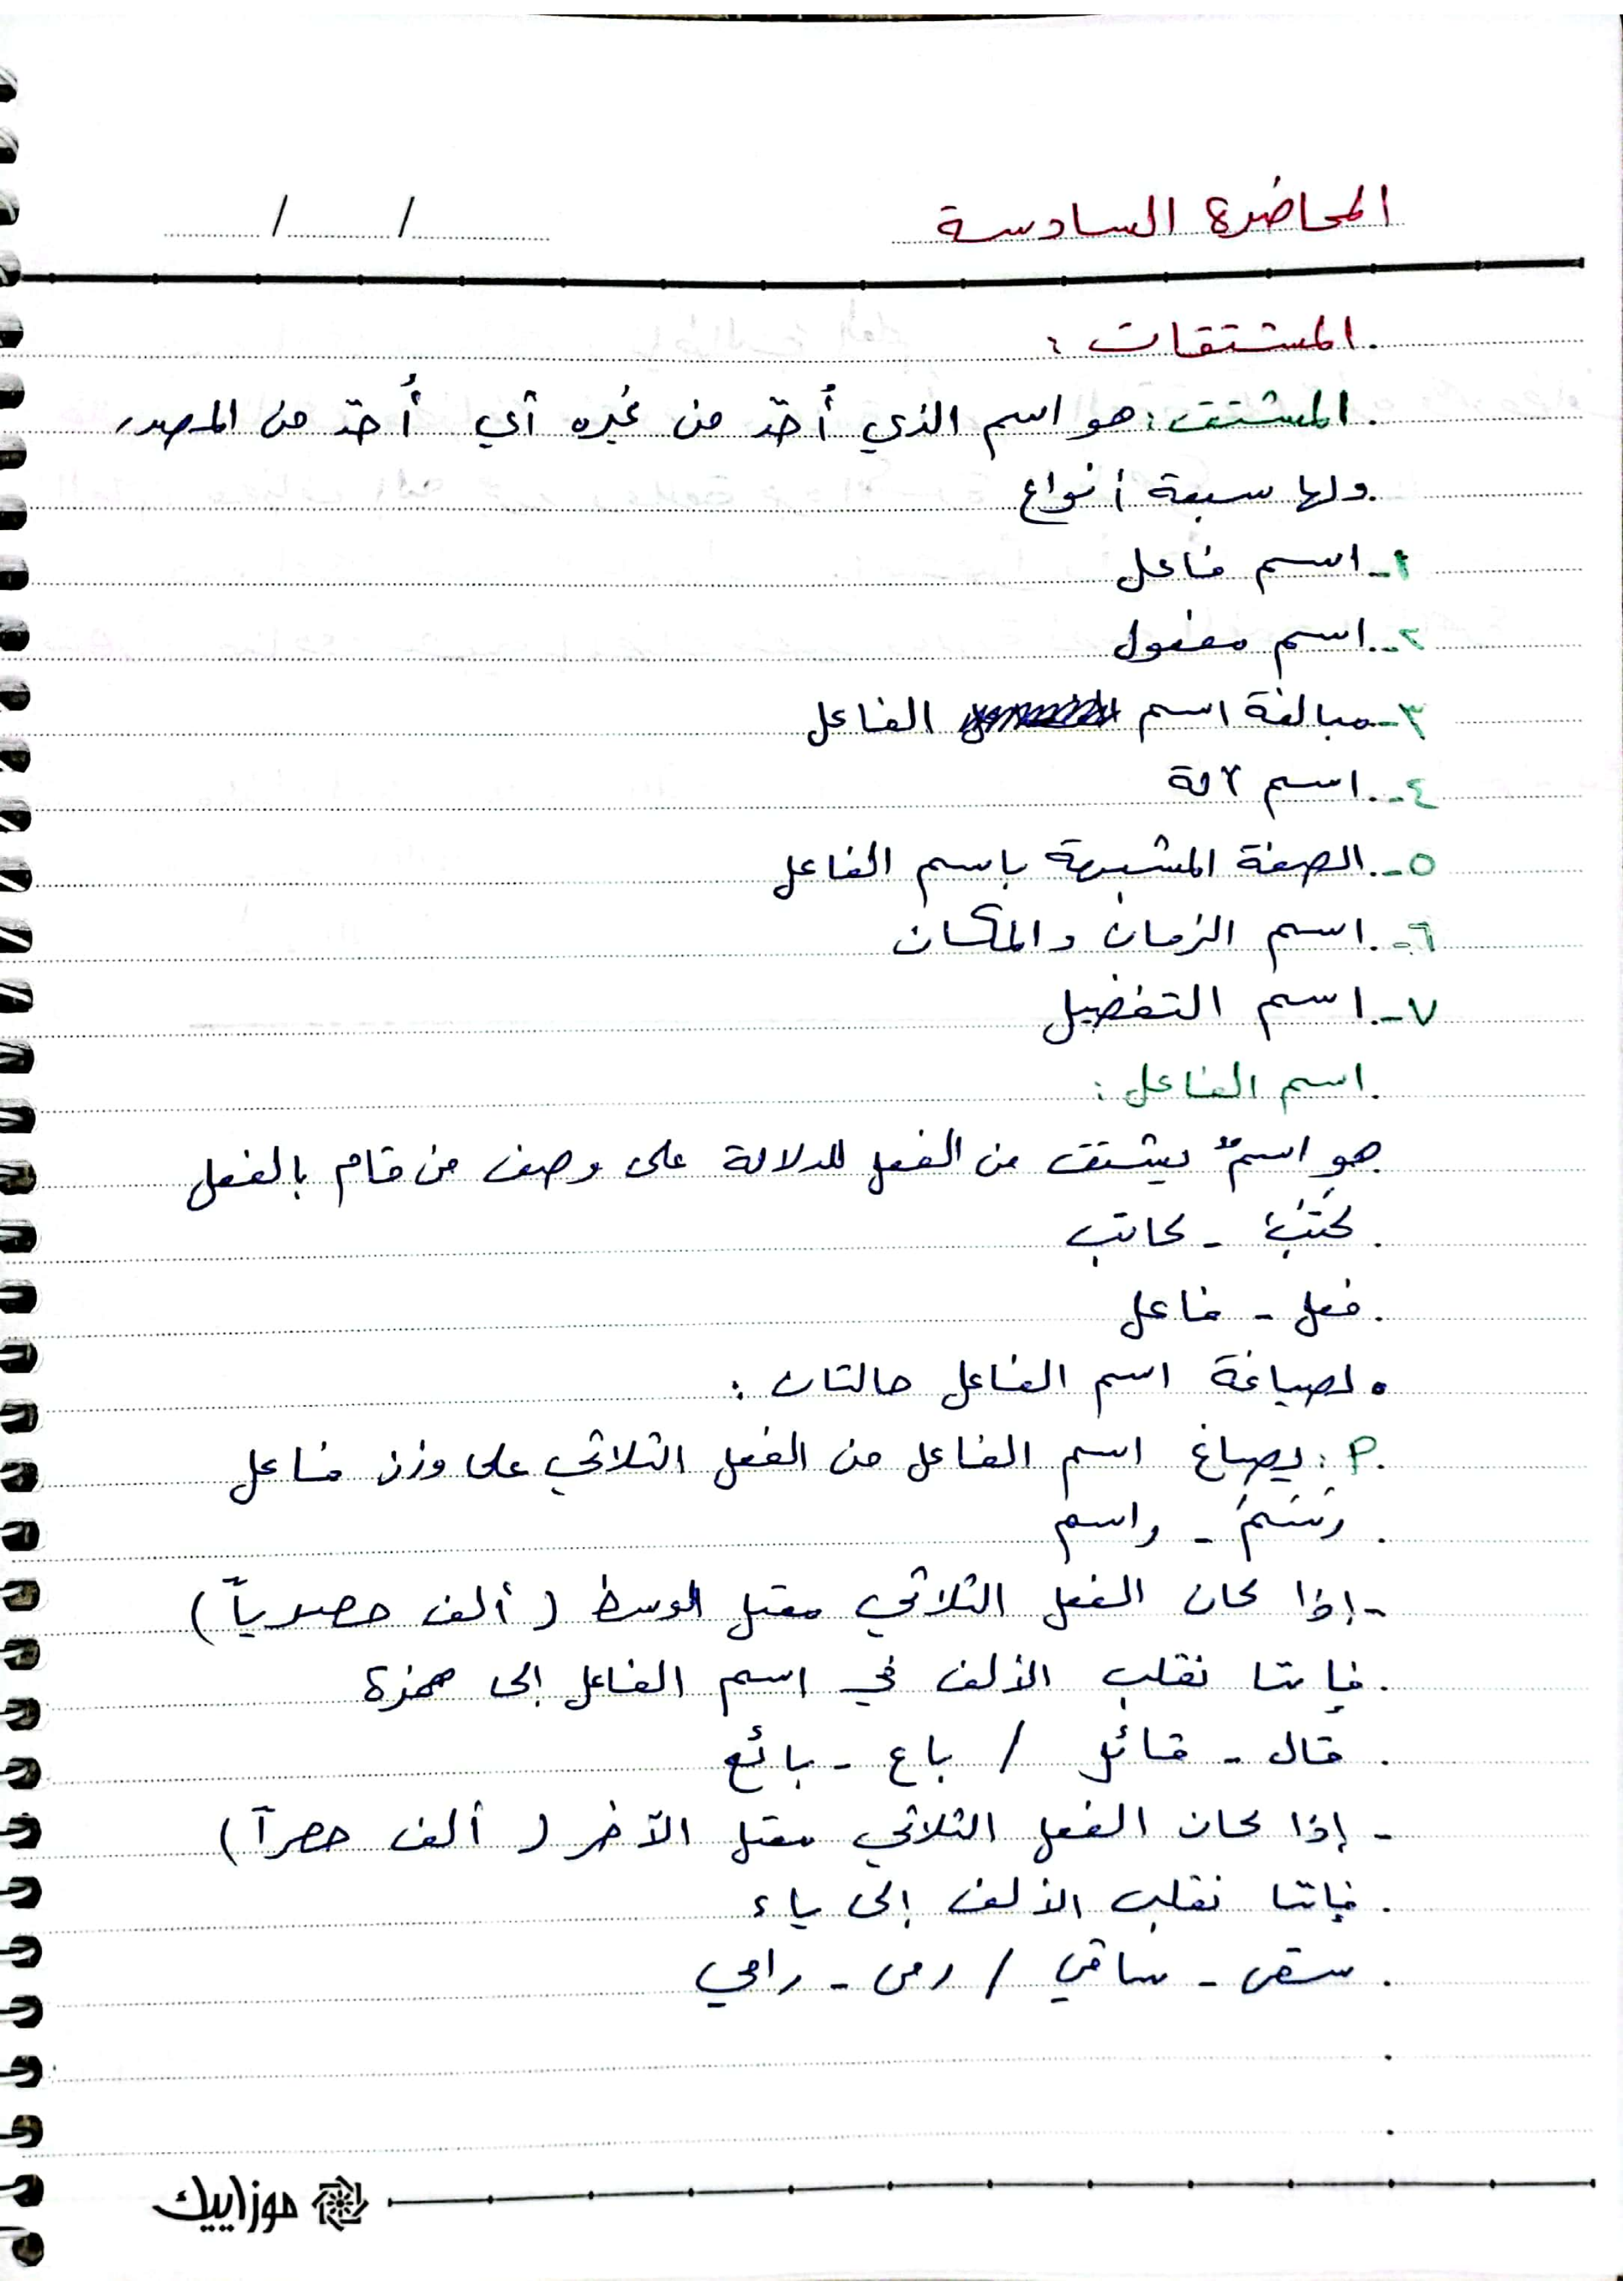 المحاضرة السادسة
/ /
المشتقات :
المشتق : هو اسم الذي أُخذ من غيره أي أُخذ من المصدر
ولها سبعة أنواع
١- اسم فاعل
٢- اسم مفعول
٣- مبالغة اسم الفاعل
٤- اسم آلة
٥- الصفة المشبهة باسم الفاعل
٦- اسم الزمان والمكان
٧- اسم التفضيل
اسم الفاعل :
هو اسمٌ يشتق من الفعل للدلالة على وصف من قام بالفعل
كَتَبَ - كاتب
فعل - فاعل
• لصياغة اسم الفاعل حالتان :
P : يصاغ اسم الفاعل من الفعل الثلاثي على وزن فاعل
رَسَمَ - راسم
- إذا كان الفعل الثلاثي معتل الوسط ( ألف حصرياً )
فإننا نقلب الألف في اسم الفاعل إلى همزة
قال - قائل / باع - بائع
- إذا كان الفعل الثلاثي معتل الآخر ( ألف حصراً )
فإننا نقلب الألف إلى ياء
سقى - ساقي / رمى - رامي
موزاييك